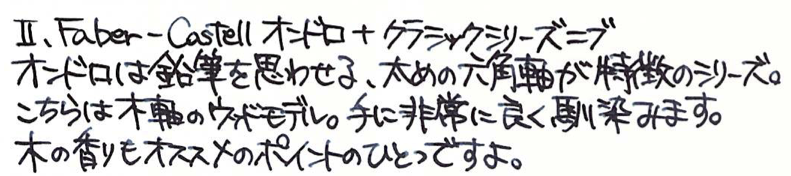 Ⅱ、Faber-Castell オンドロ+クラシックシリーズ=ブ
オンドロは鉛筆を思わせる、太めの六角軸が特徴のシリーズ。
こちらは木軸のウッドモデル。手に非常に良く馴染みます。
木の香りもオススメのポイントのひとつですよ。